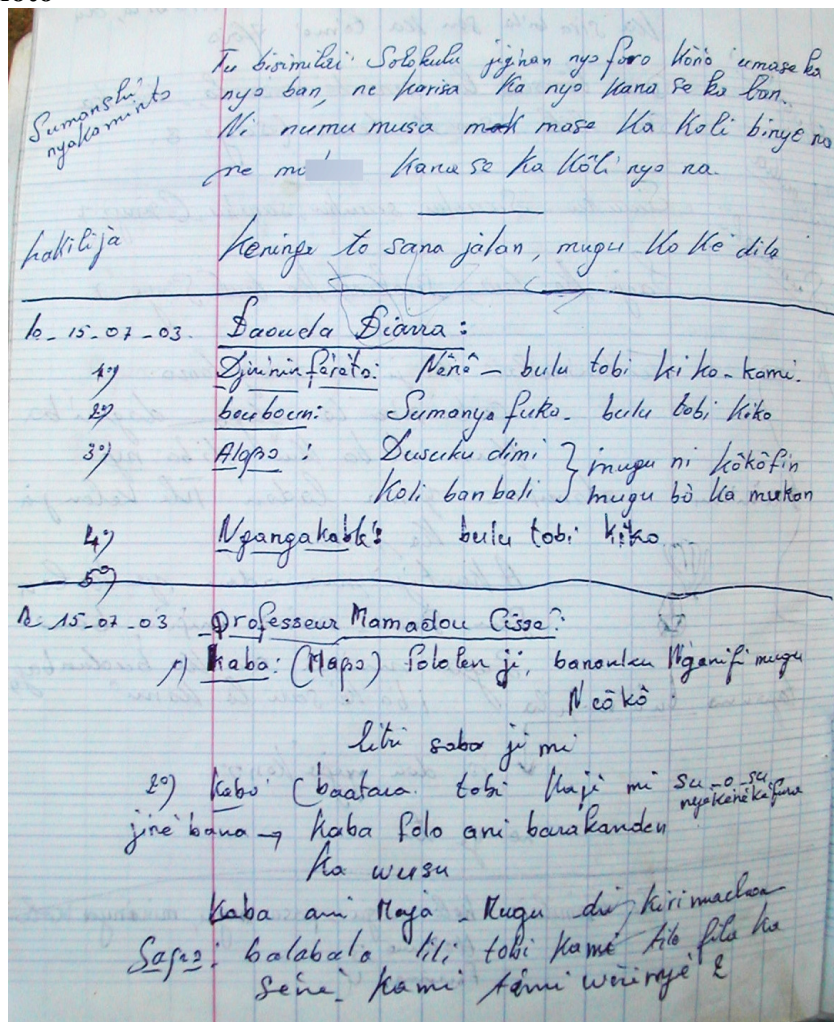 Tu bisimilai Solokulu jiginan nyo furo kônô, umase ka
Sumanshi nyakaminto
nyo ban, ne karisa ka nyo kana se ka ban.
Ni numu musa mase ka koli binye na
ne kana se ka kôli nyo na.
hakilija
keninge to sana jalan, mugu ko ke dila
le 15-07-03. Daouda Diarra :
1°) Djirinin farato: Nênê - bulu tobi ki ko - kami.
2°) boubourn: Sumanya fuko - bulu tobi kiko
3°) Alapo : Dusuku dimi } mugu ni kôkôfin
Koli banbali } mugu bô ka mukan
4°) Ngangakable: bulu tobi kiko
5°)
le 15-07-03 Professeur Mamadou Cisse:
1°) kaba: (Mapo) fololen ji, banonku Nganifi mugu
N côkô
litri saba ji mi
2°) Kaba (baatara tobi kaji mi su-o-su
nyakenekefura
jine bana → kaba folo ani barakanden
ka wusu
Kaba ani Maja Mugu di kirimachoa
Sapo: balabala lili tobi kami tilo fila ka
sene. kami